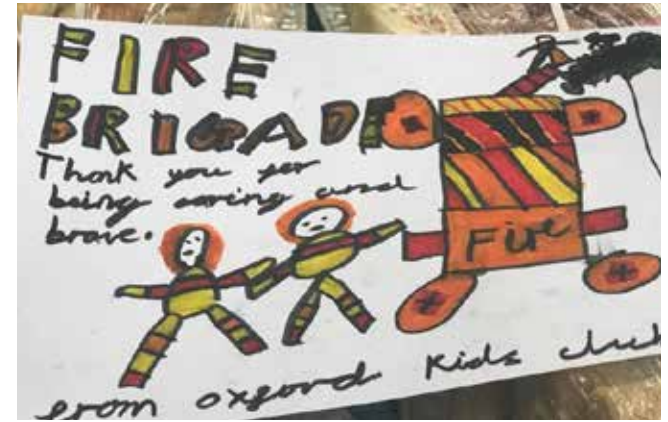 FIRE
BRIGADE
Thank you for
being caring and
brave.
Fire
from oxford Kids club